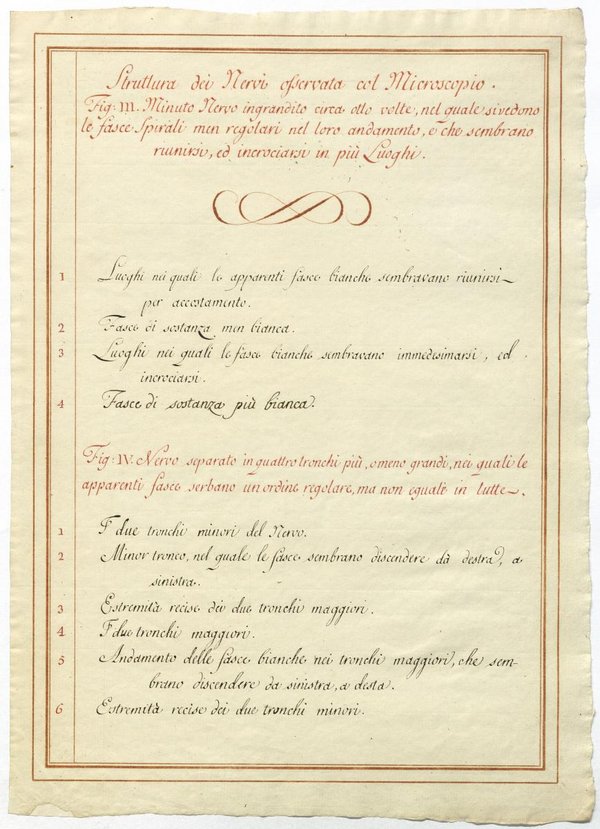 Struttura dei Nervi osservata col Microscopio.
Fig: III. Minuto Nervo ingrandito circa otto volte, nel quale si vedono
le fasce Spirali men regolari nel loro andamento, e che sembrano
riunirsi, ed incrociarsi in più Luoghi.
1 Luoghi nei quali le apparenti fasce bianche sembravano riunirsi
per accostamento.
2 Fasce di sostanza men bianca.
3 Luoghi nei quali le fasce bianche sembravano immedesimarsi, ed
incrociarsi.
4 Fasce di sostanza più bianca.
Fig: IV. Nervo separato in quattro tronchi più, o meno grandi, nei quali le
apparenti fasce serbano un ordine regolare, ma non eguale in tutte.
1 I due tronchi minori del Nervo.
2 Minor tronco, nel quale le fasce sembrano discendere dà destra, a
sinistra.
3 Estremità recise dei due tronchi maggiori.
4 I due tronchi maggiori.
5 Andamento delle fasce bianche nei tronchi maggiori, che sem-
brano discendere da sinistra, a desta.
6 Estremità recise dei due tronchi minori.